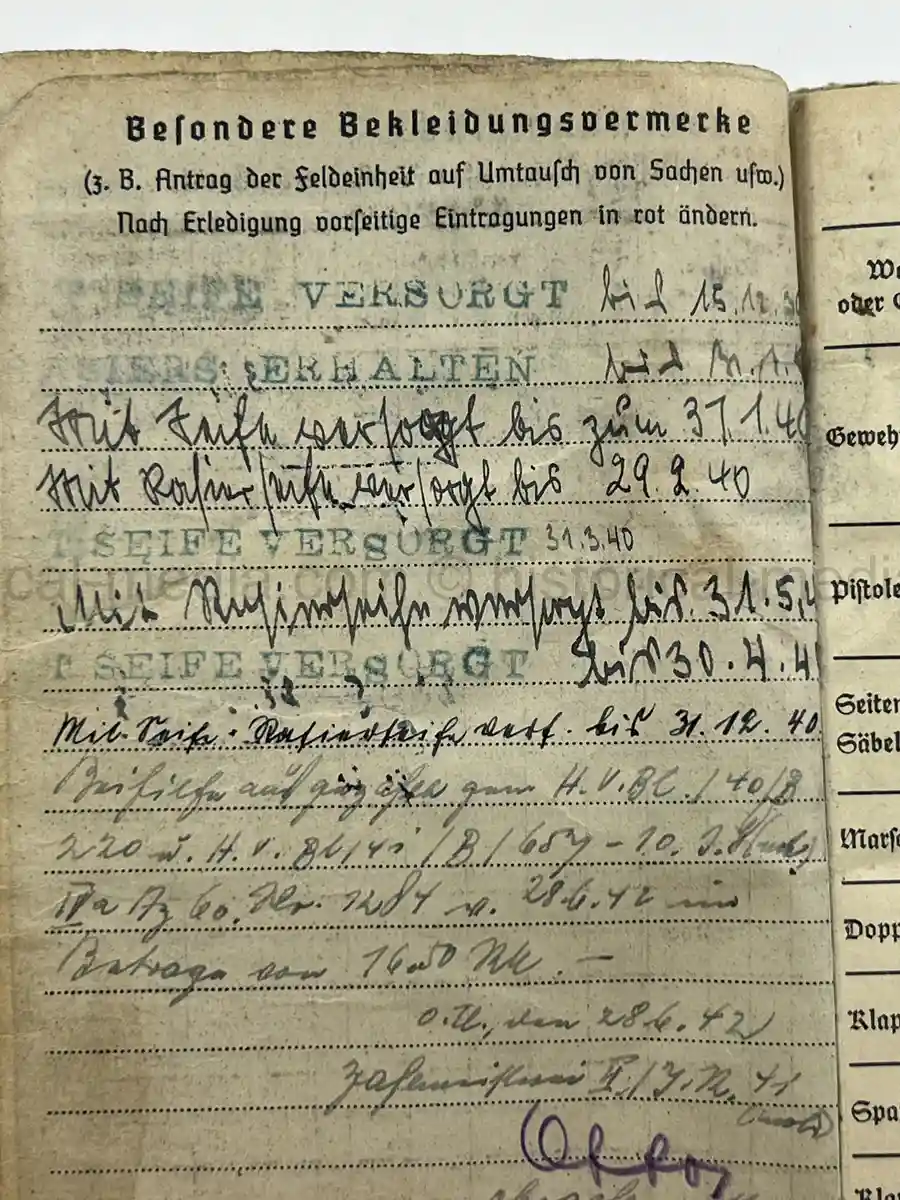 Besondere Bekleidungsvermerke
(z. B. Antrag der Feldeinheit auf Umtausch von Sachen usw.)
Nach Erledigung vorseitige Eintragungen in rot ändern.
SEIFE VERSORGT bis 15.12.
ERHALTEN bis
Mit Seife versorgt bis zum 31.1.40
Mit Rasierseife versorgt bis 29.2.40
T SEIFE VERSORGT 31.3.40
Mit Rasierseife versorgt bis 31.5.4
T SEIFE VERSORGT bis 30.4.4
Mit Seife. Rasierseife vers. bis 31.12.40
Beihilfe gem H.V.Bl./40/B
220 u. H.V.Bl/41/B/657-10.
IVa Az 60. Nr. 1284 v. 28.6.42 im
Betrage von RM.-
O.U., den 28.6.42
Zahlmeisterei II./I.R. 41
We
oder
Gewehr
Pistole
Seiten
Säbel
Mars
Dopp
Klap
Spa